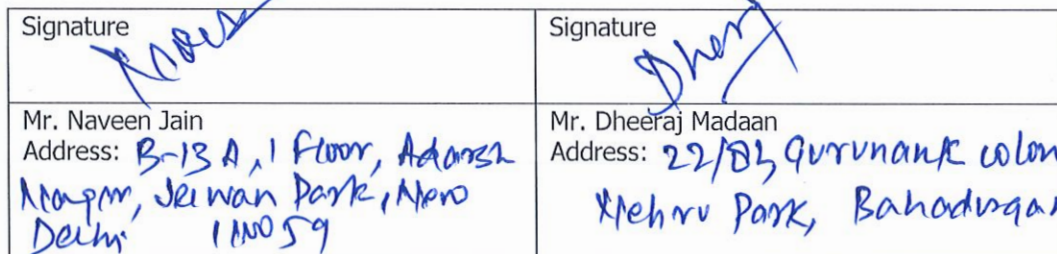 Signature
Naveen
Mr. Naveen Jain
Address: B-13 A, 1 Floor, Adarsh
Nagar, Jeewan Park, New
Delhi 110059
Signature
Dheeraj
Mr. Dheeraj Madaan
Address: 22/83, Gurunank colon
Nehru Park, Bahadurgar